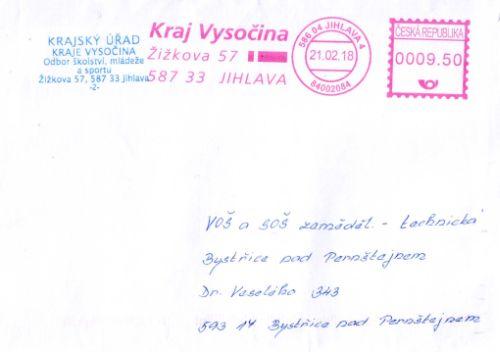 KRAJSKÝ ÚŘAD
KRAJE VYSOČINA
Odbor školství, mládeže
a sportu
Žižkova 57, 587 33 Jihlava
-2-
Kraj Vysočina
Žižkova 57
587 33 JIHLAVA
586 04 JIHLAVA 4
21.02.18
84002084
ČESKÁ REPUBLIKA
0009.50
VOŠ a SOŠ zeměděl. - technická
Bystřice nad Pernštejnem
Dr. Veselého 343
593 14 Bystřice nad Pernštejnem